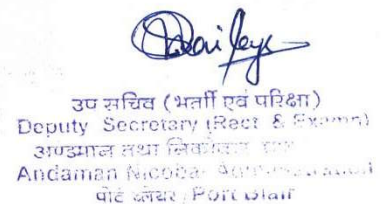 उप सचिव (भर्ती एवं परिक्षा)
Deputy Secretary (Rect. & Examn)
अण्डमान तथा निकोबार
Andaman Nicobar Administration
पोर्ट ब्लेयर / Port Blair